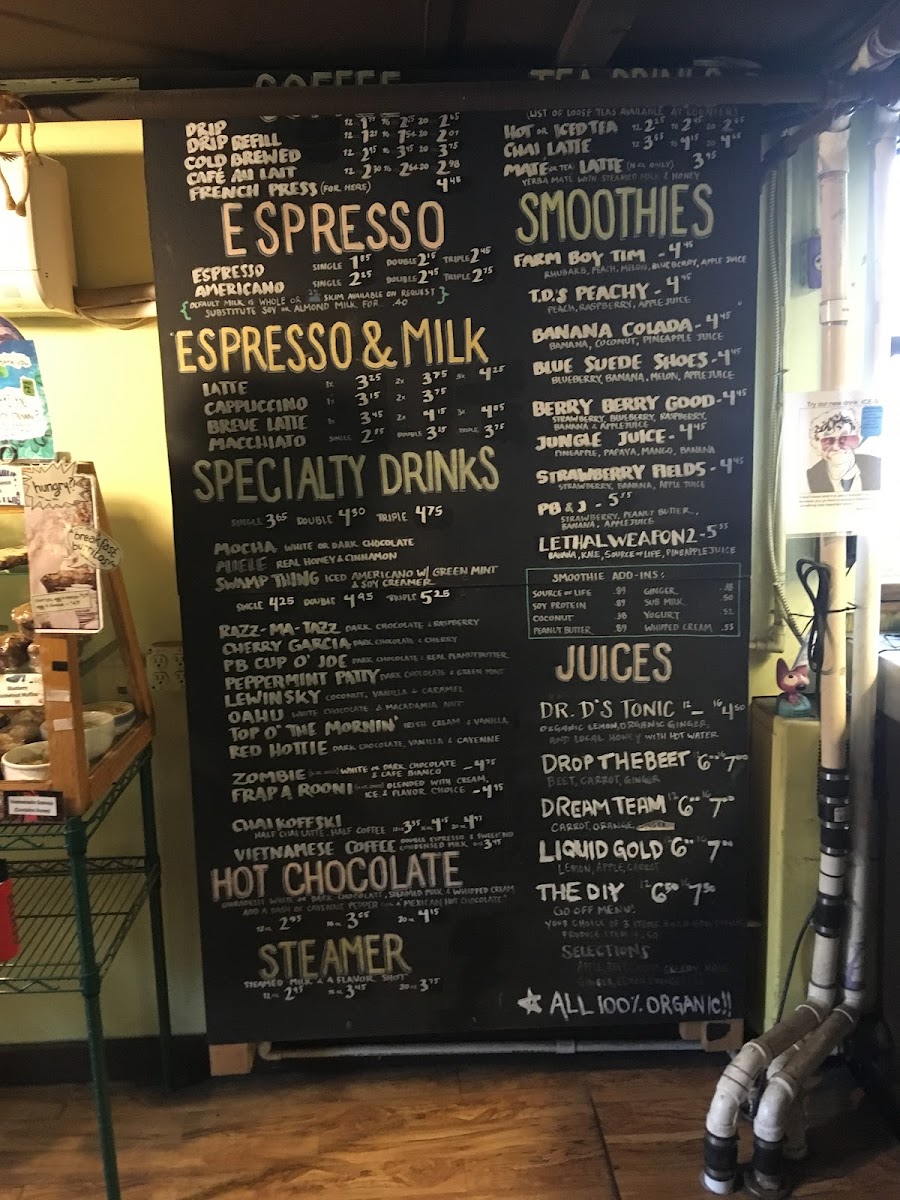 COFFEE
DRIP 12 20
DRIP REFILL 12 1.21 16 1.54 20 2.07
COLD BREWED 12 2.95 16 3.45 20 3.75
CAFÉ AU LAIT 12 2.30 16 2.64 20 2.98
FRENCH PRESS (FOR HERE)
ESPRESSO
ESPRESSO SINGLE DOUBLE 2.15 TRIPLE 2.45
AMERICANO SINGLE 2.25 DOUBLE 2.45 TRIPLE 2.75
{ DEFAULT MILK IS WHOLE OR 2% SKIM AVAILABLE ON REQUEST }
SUBSTITUTE SOY OR ALMOND MILK FOR .40
ESPRESSO & MILK
LATTE 1x 3.25 2x 3.75 3x 4.25
CAPPUCCINO 1x 3.15 2x 3.75
BREVE LATTE 1x 3.45 2x 4.15 3x
MACCHIATO SINGLE DOUBLE TRIPLE 3.75
SPECIALTY DRINKS
SINGLE 3.65 DOUBLE 4.30 TRIPLE 4.75
MOCHA WHITE OR DARK CHOCOLATE
MIELE REAL HONEY & CINNAMON
SWAMP THING ICED AMERICANO W/ GREEN MINT
& SOY CREAMER
SINGLE 4.25 DOUBLE 4.95 TRIPLE 5.25
RAZZ-MA-TAZZ DARK CHOCOLATE & RASPBERRY
CHERRY GARCIA DARK CHOCOLATE & CHERRY
PB CUP O' JOE DARK CHOCOLATE & REAL PEANUT BUTTER
PEPPERMINT PATTY DARK CHOCOLATE & GREEN MINT
LEWINSKY COCONUT, VANILLA & CARAMEL
OAHU WHITE CHOCOLATE & MACADAMIA NUT
TOP O' THE MORNIN' IRISH CREAM & VANILLA
RED HOTTIE DARK CHOCOLATE, VANILLA & CAYENNE
ZOMBIE WHITE OR DARK CHOCOLATE - 4.75
& CAFE BIANCO
FRAPAROONI BLENDED WITH CREAM,
ICE & FLAVOR CHOICE - 4.95
CHAIKOFFSKI
HALF CHAI LATTE, HALF COFFEE 12oz 3.35 16oz 4.15 20oz
VIETNAMESE COFFEE DOUBLE ESPRESSO & SWEETENED
CONDENSED MILK 3.45
HOT CHOCOLATE
GHIRARDELLI WHITE OR DARK CHOCOLATE, STEAMED MILK & WHIPPED CREAM
ADD A DASH OF CAYENNE PEPPER FOR A "MEXICAN HOT CHOCOLATE"
12oz 2.95 16oz 3.65 20oz 4.15
STEAMER
STEAMED MILK & A FLAVOR SHOT
12oz 2.95 16oz 3.45 20oz 3.75
TEA DRINKS
(LIST OF LOOSE TEAS AVAILABLE AT COUNTER)
HOT OR ICED TEA 12 16 20
CHAI LATTE 12 3.65 16 4.15 20 4.65
MATE OR TEA LATTE (16oz ONLY) 3.95
YERBA MATE WITH STEAMED MILK & HONEY
SMOOTHIES
FARM BOY TIM - 4.45
RHUBARB, PEACH, MELON, BLUEBERRY, APPLE JUICE
T.D'S PEACHY - 4.45
PEACH, RASPBERRY, APPLE JUICE
BANANA COLADA - 4.45
BANANA, COCONUT, PINEAPPLE JUICE
BLUE SUEDE SHOES - 4.45
BLUEBERRY, BANANA, MELON, APPLE JUICE
BERRY BERRY GOOD - 4.45
STRAWBERRY, BLUEBERRY, RASPBERRY,
BANANA & APPLE JUICE
JUNGLE JUICE - 4.45
PINEAPPLE, PAPAYA, MANGO, BANANA
STRAWBERRY FIELDS - 4.45
STRAWBERRY, BANANA, APPLE JUICE
PB & J -
STRAWBERRY, PEANUT BUTTER,
BANANA, APPLE JUICE
LETHAL WEAPON 2 -
BANANA, KALE, SOURCE OF LIFE, PINEAPPLE JUICE
SMOOTHIE ADD-INS:
SOURCE OF LIFE .89 GINGER
SOY PROTEIN .89 SUB MILK .50
COCONUT .38 YOGURT .52
PEANUT BUTTER .89 WHIPPED CREAM .55
JUICES
DR. D'S TONIC 12 - 16 4.50
ORGANIC LEMON, ORGANIC GINGER,
AND LOCAL HONEY WITH HOT WATER
DROP THE BEET 12 6.00 16 7.00
BEET, CARROT, GINGER
DREAM TEAM 12 6.00 16 7.00
CARROT, ORANGE, GINGER
LIQUID GOLD 12 6.00 16 7.00
LEMON, APPLE, CARROT
THE DIY 12 6.50 16 7.50
GO OFF MENU!
YOUR CHOICE OF 3 ITEMS
SELECTIONS
ALL 100% ORGANIC!!
hungry?
breakfast
burritos!
Try our new drink